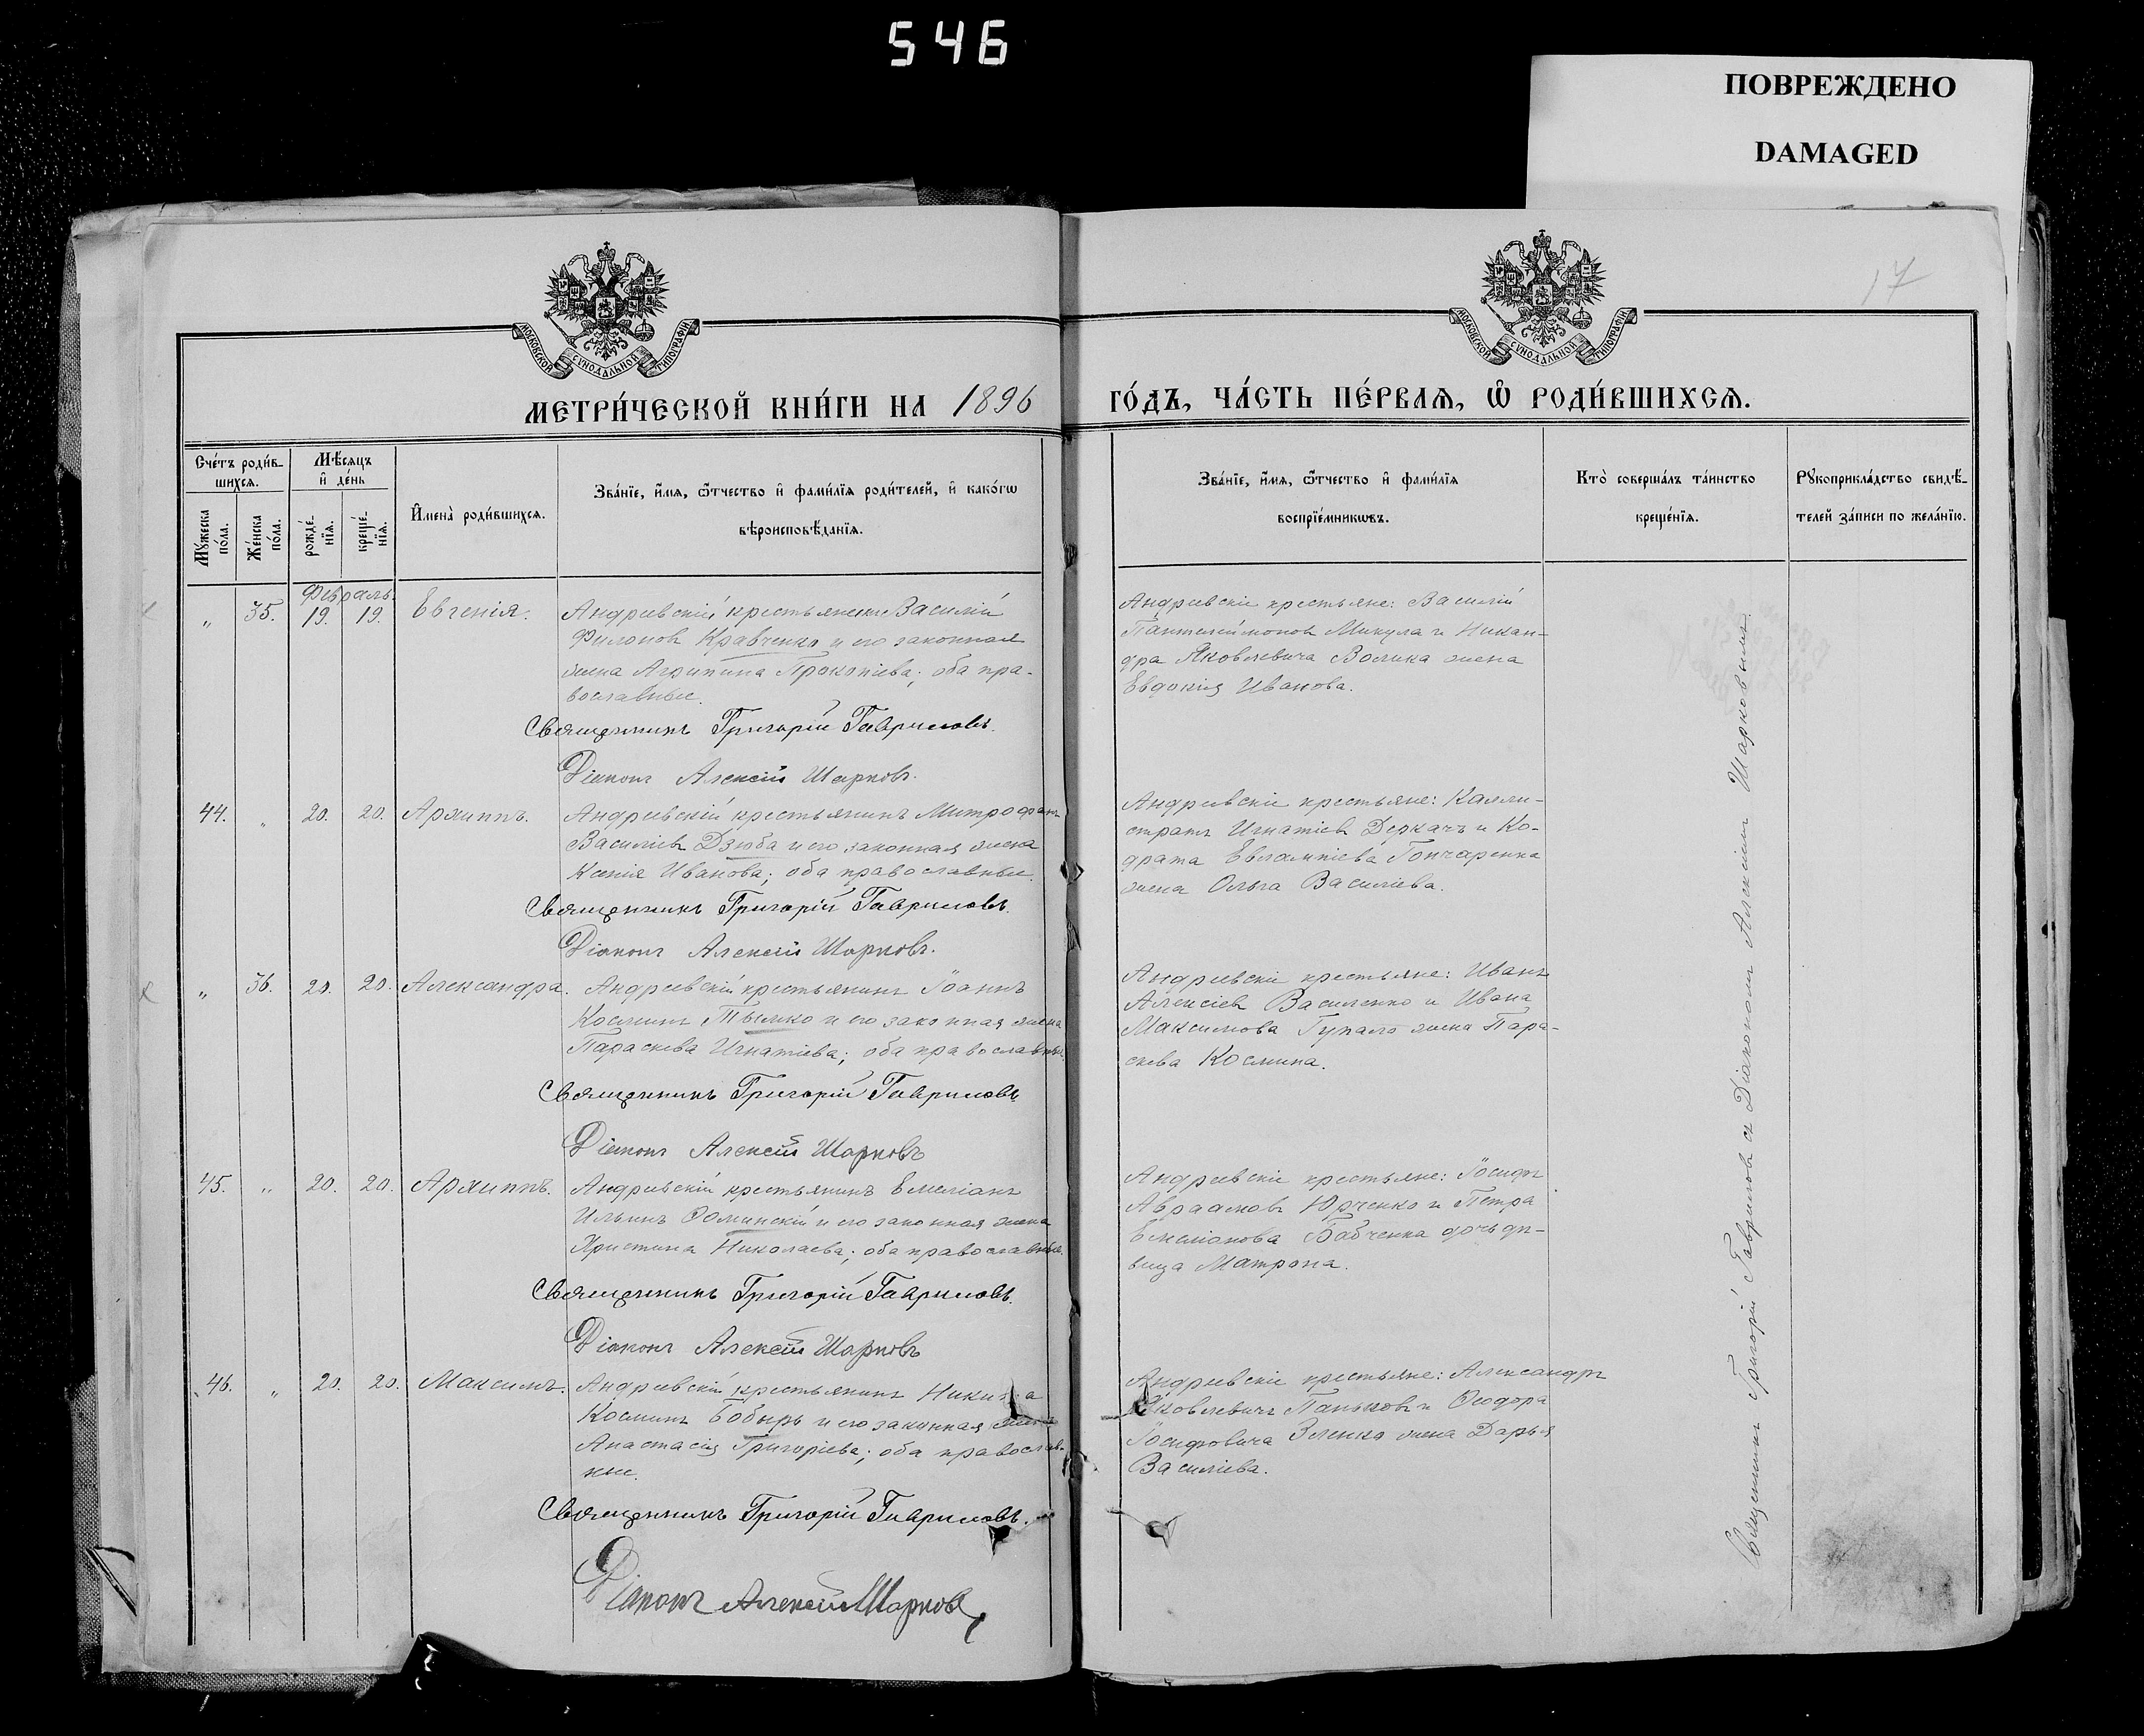 546
ПОВРЕЖДЕНО
DAMAGED
17
МОСКОВСКОЙ СѴНОДАЛЬНОЙ ТИПОГРАФІИ
МОСКОВСКОЙ СѴНОДАЛЬНОЙ ТИПОГРАФІИ
МЕТРИ́ЧЕСКОЙ КНИ́ГИ НА 1896 ГО́ДЪ, ЧА́СТЬ ПЕ́РВАѦ, Ѽ РОДИ́ВШИХСѦ.
Сче́тъ роди́в-
шихсѧ.
Мꙋ́жеска
по́ла.
Же́нска
по́ла.
Мѣ́сѧцъ
и҆ де́нь
рожде́-
нїѧ.
креще́-
нїѧ.
И҆мена̀ роди́вшихсѧ.
Зва́нїе, и҆́мѧ, ѻ҆́тчество и҆ фами́лїѧ роди́телей, и҆ како́гѡ
вѣроисповѣ́данїѧ.
Зва́нїе, и҆́мѧ, ѻ҆́тчество и҆ фами́лїѧ
воспрїе́мникѡвъ.
Кто̀ соверша́лъ та́инство
креще́нїѧ.
Рꙋкоприкла́дство свидѣ́-
телей за́писи по жела́нїю.
Февраль.
" 35. 19. 19. Евгенія.
Андреевскій крестьянинъ Василій
Филоновъ Кравченко и его законная
жена Агрипина Прокопіева; оба пра-
вославные.
Священникъ Григорій Гавриловъ.
Діаконъ Алексій Шарковъ.
Андреевскіе крестьяне: Василій
Пантелеймоновъ Микула и Никан-
дра Яковлевича Волика жена
Евдокія Иванова.
44. " 20. 20. Архиппъ.
Андреевскій крестьянинъ Митрофанъ
Василіевъ Дзюба и его законная жена
Ксенія Иванова; оба православные.
Священникъ Григорій Гавриловъ.
Діаконъ Алексій Шарковъ.
Андреевскіе крестьяне: Калли-
стратъ Игнатіевъ Деркачъ и Ко-
драта Евлампіева Гончаренка
жена Ольга Василіева.
" 36. 20. 20. Александра.
Андреевскій крестьянинъ Іоаннъ
Косминъ Тымко и его законная жена
Параскева Игнатіева; оба православные.
Священникъ Григорій Гавриловъ
Діаконъ Алексій Шарковъ
Андреевскіе крестьяне: Иванъ
Алексіевъ Василенко и Ивана
Максимова Гупало жена Пара-
скева Космина.
45. " 20. 20. Архиппъ.
Андреевскій крестьянинъ Емеліанъ
Ильинъ Фоминскій и его законная жена
Христина Николаева; оба православные.
Священникъ Григорій Гавриловъ.
Діаконъ Алексій Шарковъ
Андреевскіе крестьяне: Іосифъ
Авраамовъ Юрченко и Петра
Емеліанова Бабченка дочь дѣ-
вица Матрона.
46. " 20. 20. Максимъ.
Андреевскій крестьянинъ Никита
Косминъ Бобырь и его законная жена
Анастасія Григоріева; оба православ-
ные.
Священникъ Григорій Гавриловъ.
Діаконъ Алексій Шарковъ
Андреевскіе крестьяне: Александръ
Яковлевичъ Паньковъ и Ѳеодора
Іосифовича Зленко жена Дарья
Василіева.
Священникъ Григорій Гавриловъ съ Діакономъ Алексіемъ Шарковымъ.